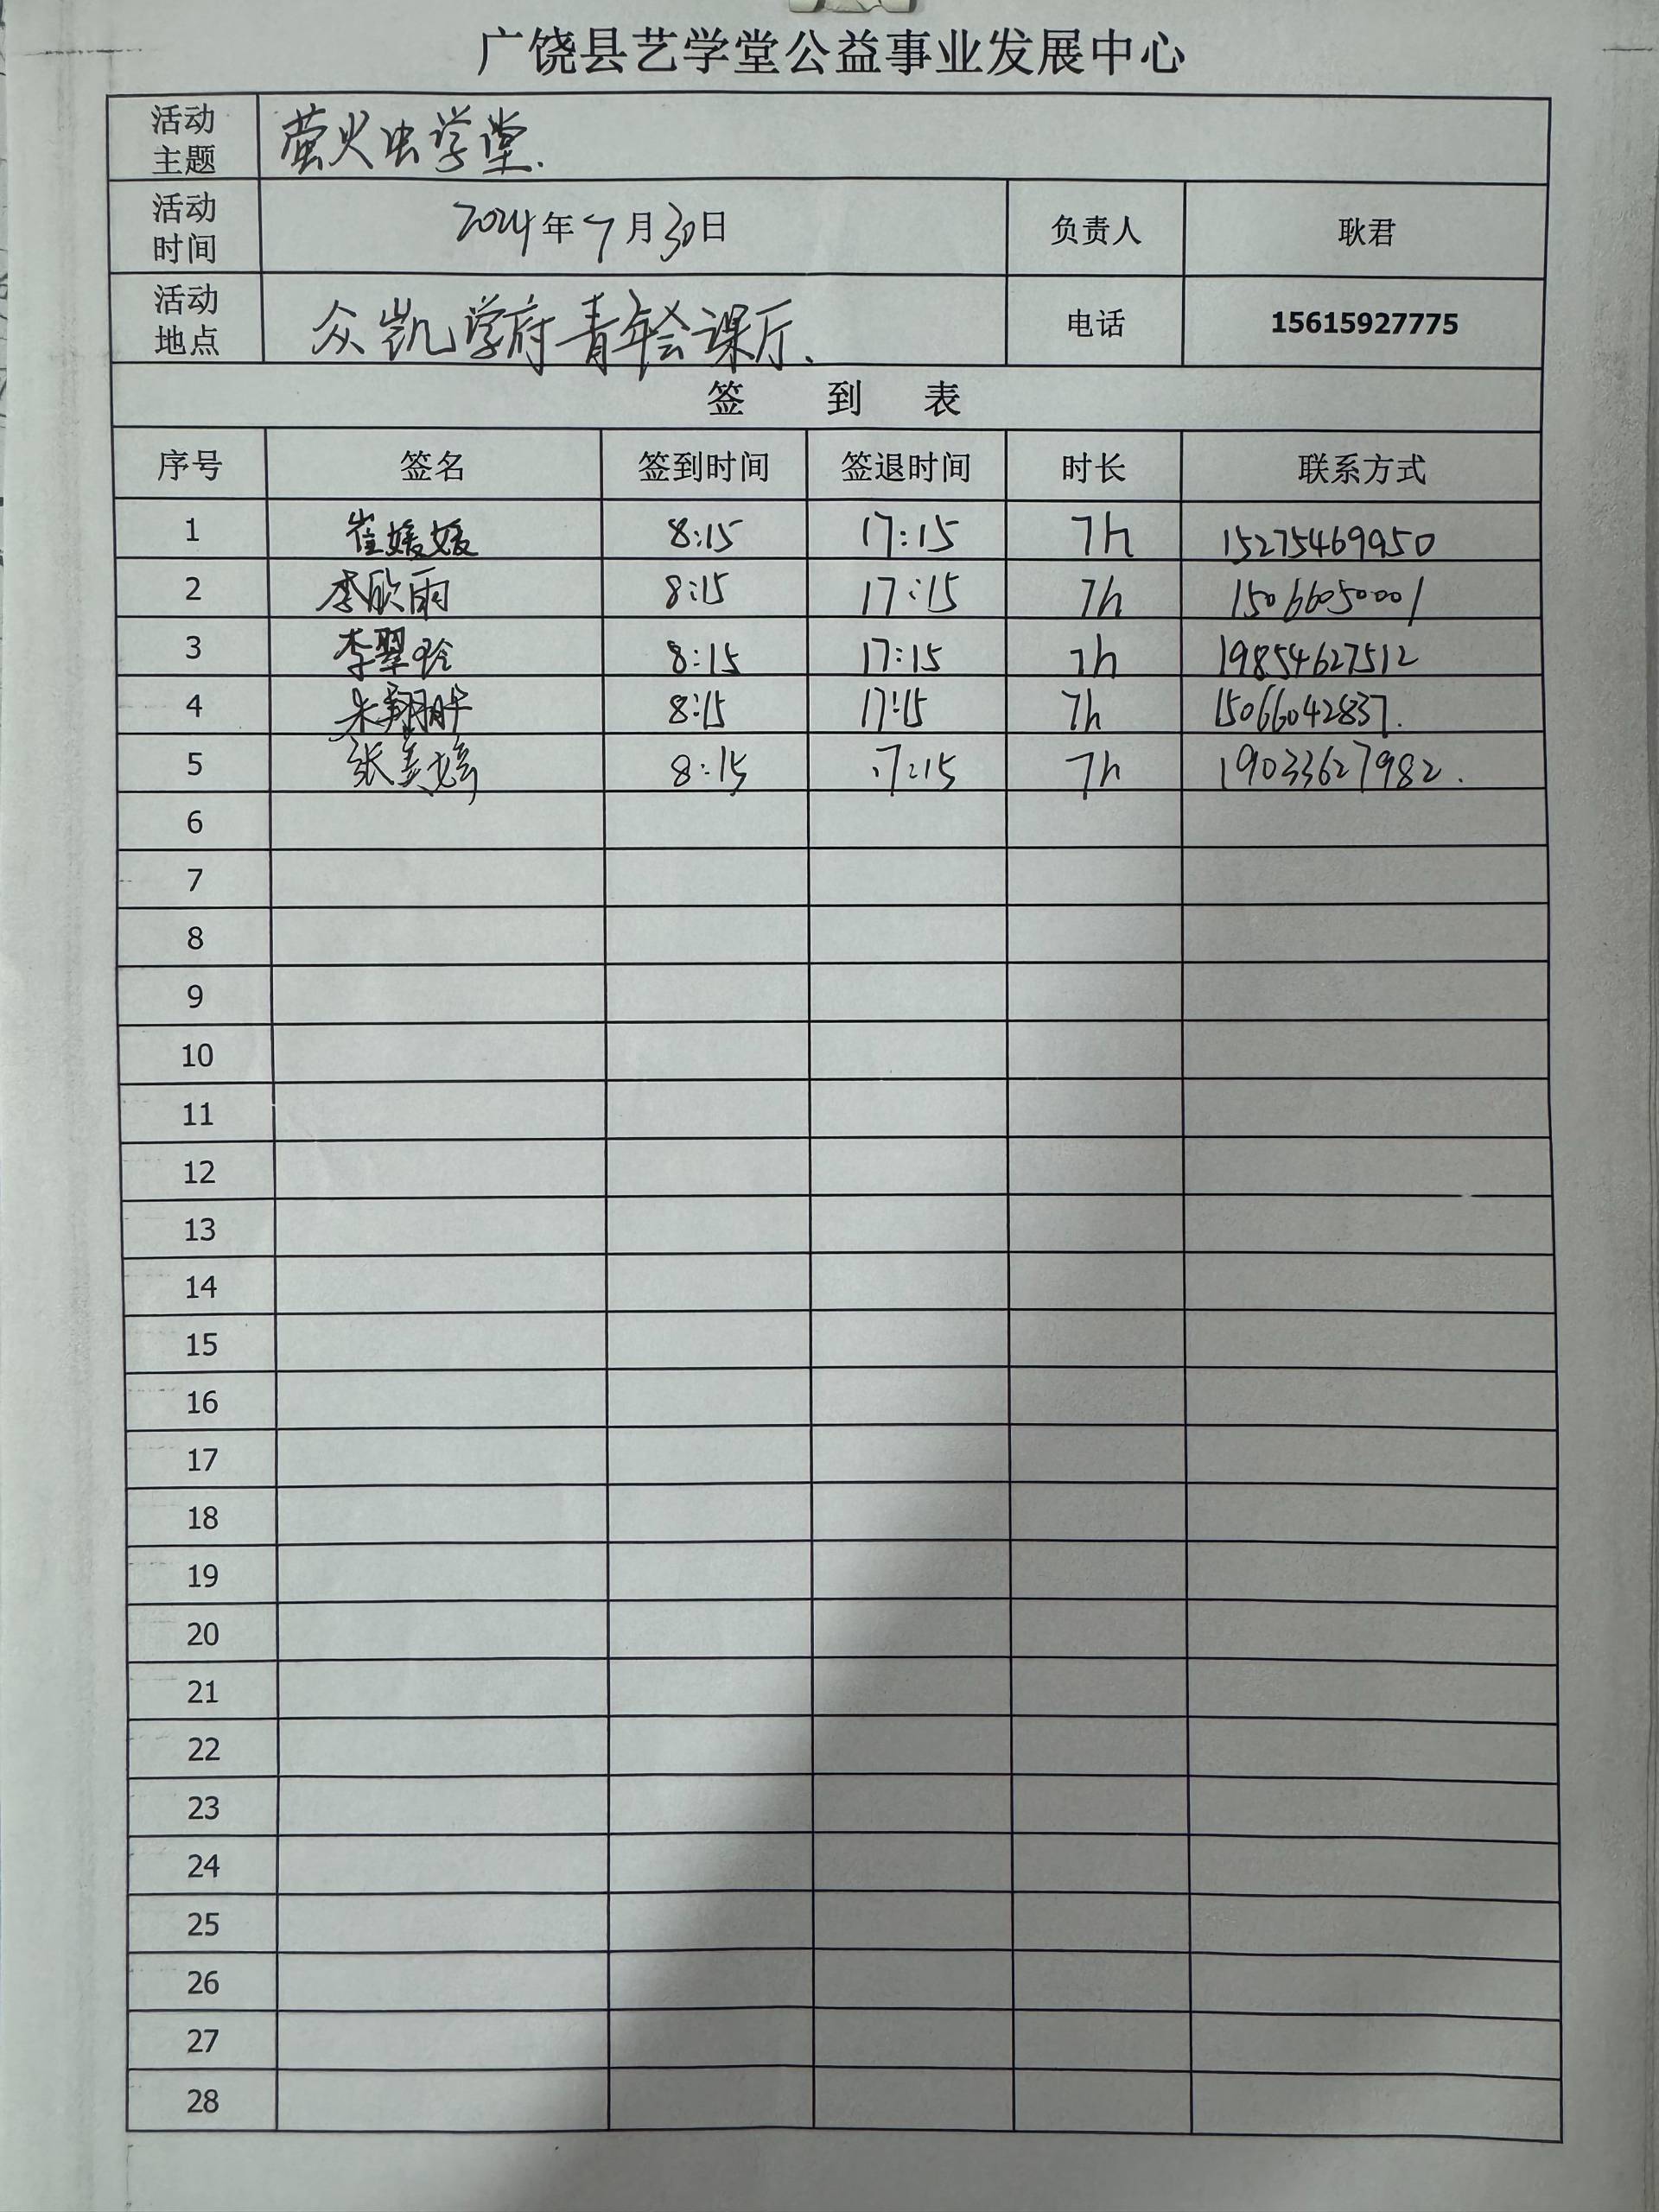 广饶县艺学堂公益事业发展中心
活动主题 萤火虫学堂.
活动时间 2024年7月30日 负责人 耿君
活动地点 众凯学府青年会课厅. 电话 15615927775
签 到 表
序号 签名 签到时间 签退时间 时长 联系方式
1 崔媛媛 8:15 17:15 7h 15275469950
2 李欣雨 8:15 17:15 7h 15066050001
3 李翠玲 8:15 17:15 7h 19854627512
4 朱翔 8:15 17:15 7h 15066042837.
5 张美婷 8:15 17:15 7h 19033627982.
6
7
8
9
10
11
12
13
14
15
16
17
18
19
20
21
22
23
24
25
26
27
28